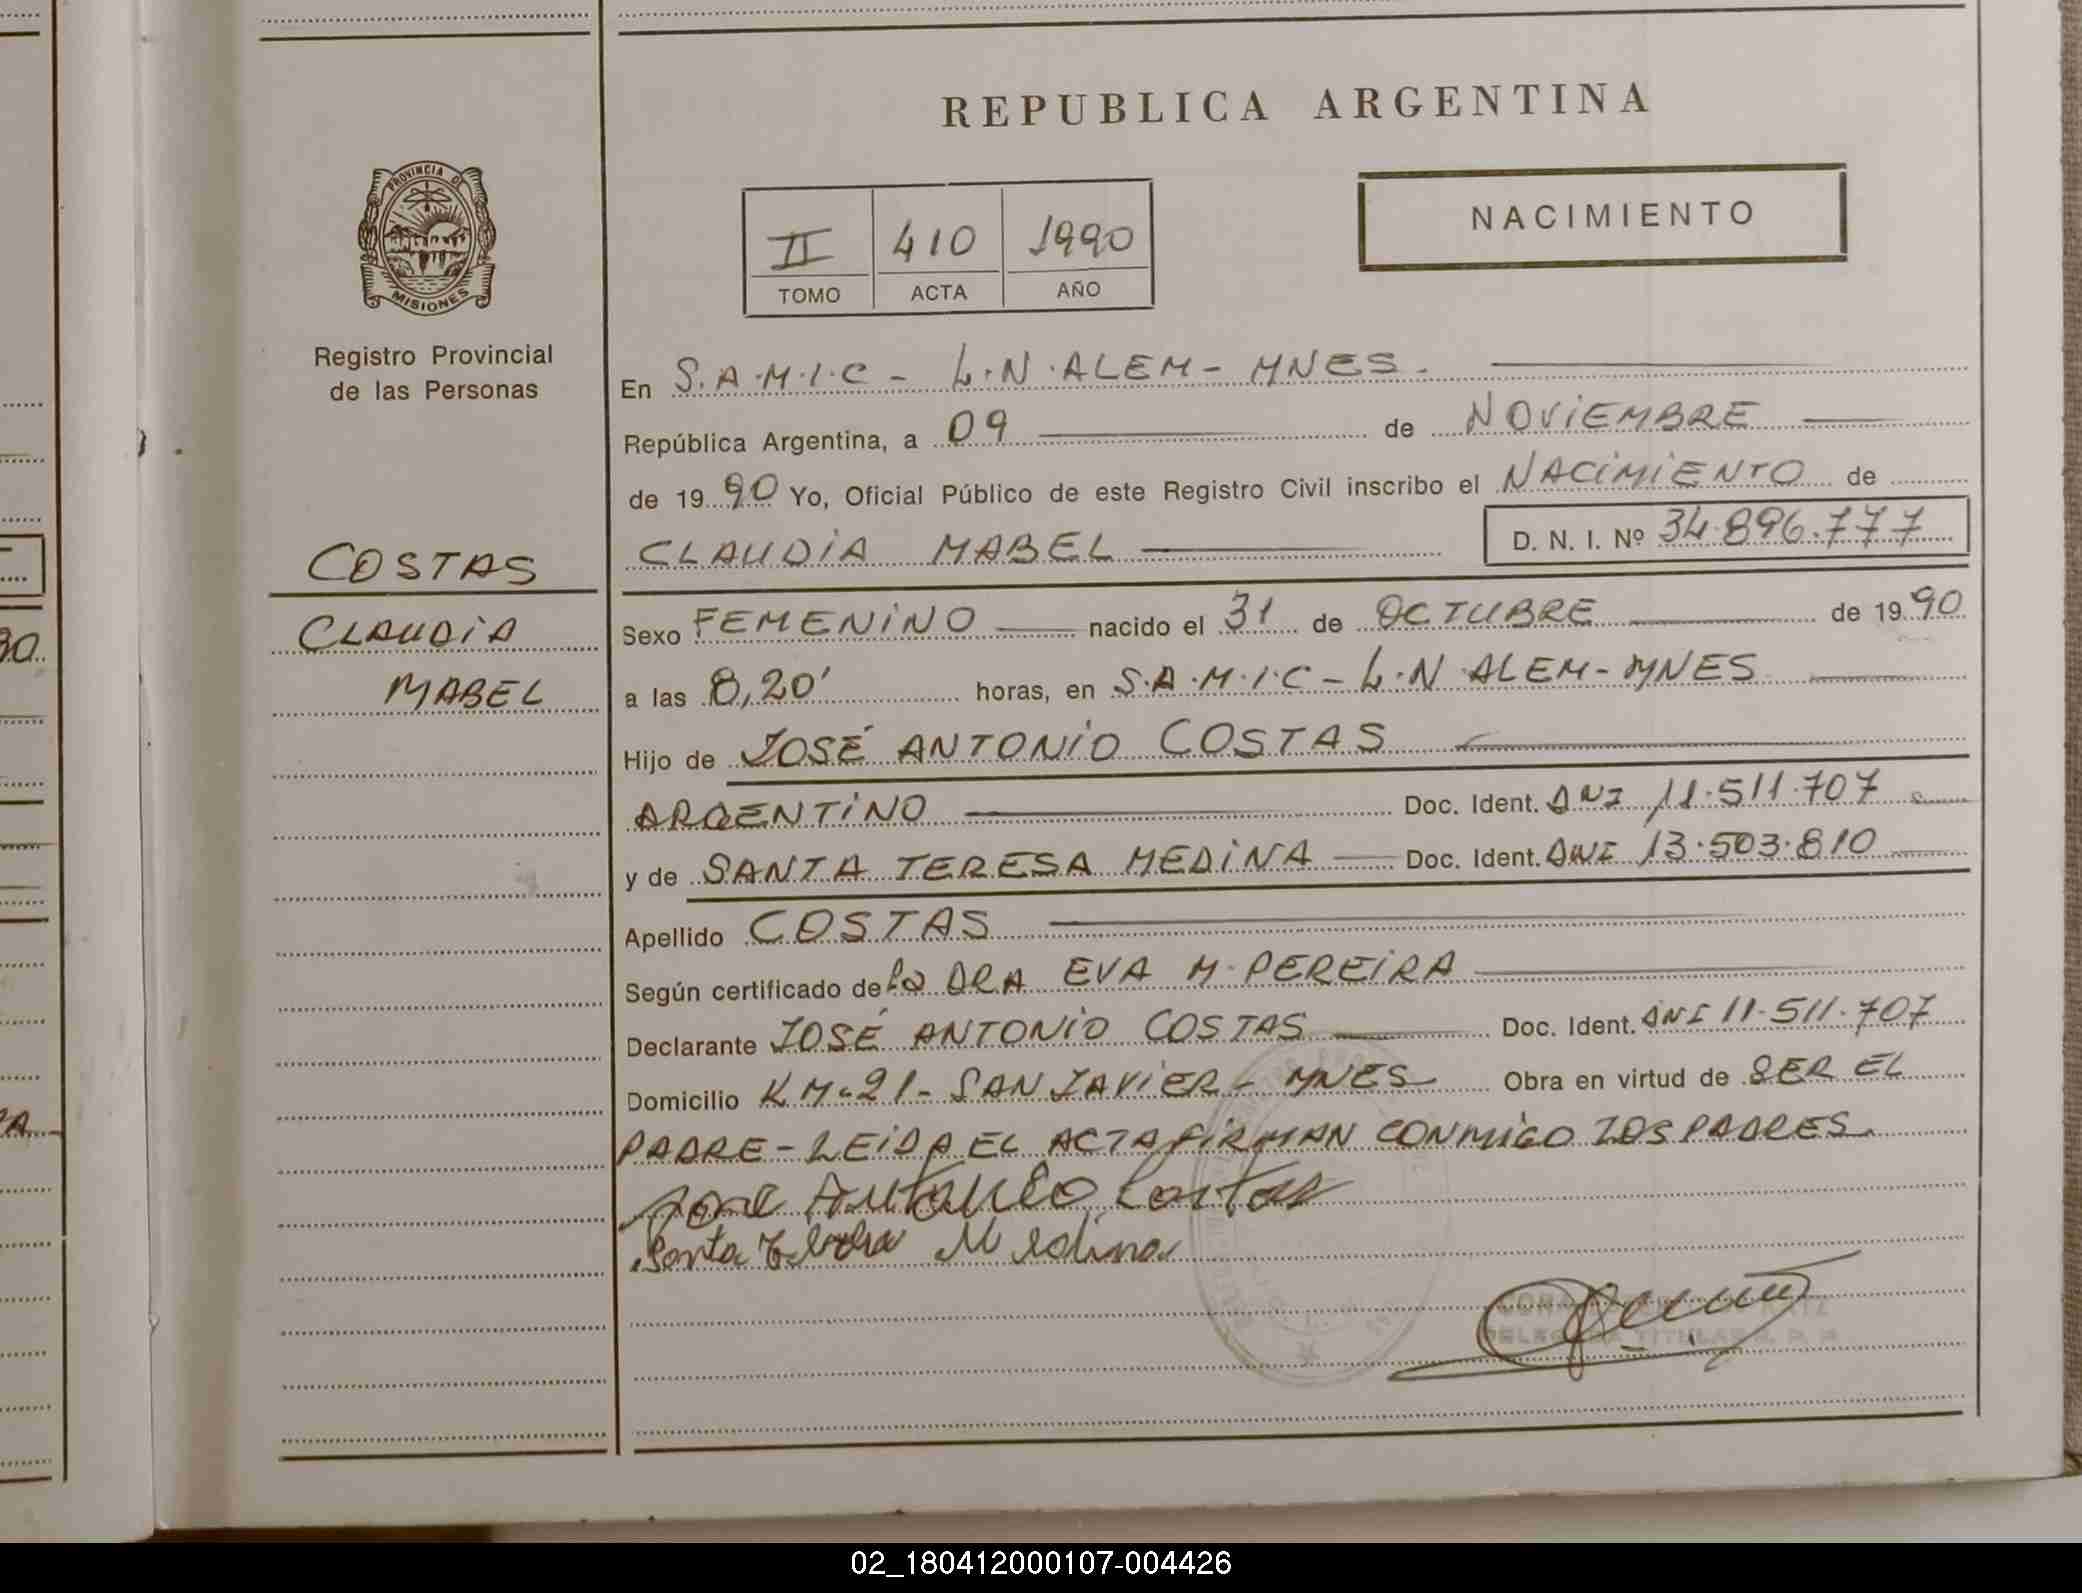 REPUBLICA ARGENTINA
PROVINCIA DE
MISIONES
Registro Provincial
de las Personas
II 410 1990
TOMO ACTA AÑO
NACIMIENTO
En S.A.M.I.C - L.N.ALEM - MNES.
República Argentina, a 09 de NOViEMBRE
de 1990 Yo, Oficial Público de este Registro Civil inscribo el NACiMiENTO de
CLAUDiA MABEL D. N. I. Nº 34.896.777
COSTAS
CLAUDiA
MABEL
Sexo FEMENiNO nacido el 31 de OCTUBRE de 1990
a las 8,20' horas, en S.A.M.I.C - L.N.ALEM - MNES
Hijo de JOSÉ ANTONiO COSTAS
ARGENTiNO Doc. Ident. DNI 11.511.707
y de SANTA TERESA MEDiNA Doc. Ident. DNI 13.503.810
Apellido COSTAS
Según certificado de la DRA EVA M. PEREiRA
Declarante JOSÉ ANTONiO COSTAS Doc. Ident. DNI 11.511.707
Domicilio KM-21- SAN JAViER - MNES Obra en virtud de SER EL
PADRE - LEiDA EL ACTA FiRMAN CONMiGO LOS PADRES.
José Antonio Costas
Santa Medina
DELEGADA TITULAR R. P. P.
30.
02_180412000107-004426